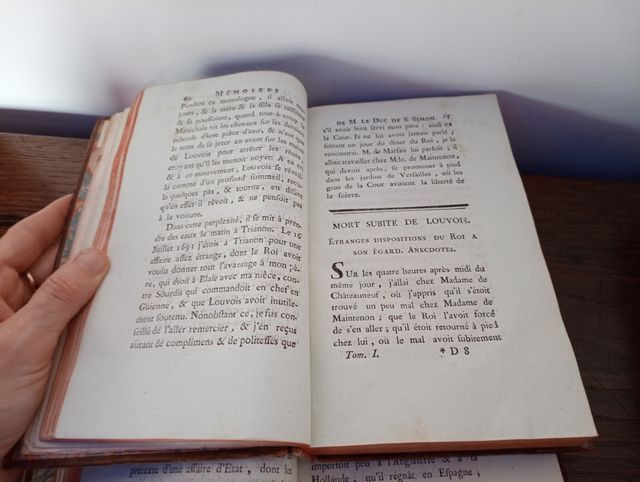 MÉMOIRES
Pendant ce monologue, il alloit tou-
jours, & la mère & la fille se tâtoient
& se poussoient, quand tout-à-coup la
Maréchale vit les chevaux sur les derniers
rebords d'une pièce d'eau, & n'eut que
le tems de se jeter en avant sur les mains
de Louvois pour arrêter les rênes,
croyant qu'il les menoit noyer. A ce cri
& à ce mouvement, Louvois se réveilla
comme d'un profond sommeil, recula
quelques pas, & tourna, en disant
qu'en effet il rêvoit, & ne pensoit pas
à la voiture.
Dans cette perplexité, il se mit à pren-
dre des eaux le matin à Trianon. Le 16
Juillet 1691 j'étois à Trianon pour une
affaire assez étrange, dont le Roi avoit
voulu donner tout l'avantage à mon pè-
re, qui étoit à Blaie avec ma nièce, con-
tre Sourdis qui commandoit en chef en
Guienne, & que Louvois avoit inutile-
ment soutenu. Nonobstant ce, je suis con-
seillé de l'aller remercier, & j'en reçus
autant de complimens & de politesses que
DE M. LE DUC DE S. SIMON. 67
s'il avoit bien servi mon père : ainsi va
la Cour. Je ne lui avois jamais parlé ;
sortant un jour du dîner du Roi, je le
rencontrai. M. de Marsan lui parloit ; il
alloit travailler chez Mde. de Maintenon,
qui devoit après, se promener à pied
dans les jardins de Versailles, où les
gens de la Cour avoient la liberté de
le suivre.
MORT SUBITE DE LOUVOIS.
ÉTRANGES DISPOSITIONS DU ROI A
SON ÉGARD. ANECDOTES.
SUR les quatre heures après midi du
même jour, j'allai chez Madame de
Châteauneuf, où j'appris qu'il s'étoit
trouvé un peu mal chez Madame de
Maintenon ; que le Roi l'avoit forcé
de s'en aller ; qu'il étoit retourné à pied
chez lui, où le mal avoit subitement
Tom. I. *D 8
prétexte d'une affaire d'Etat, dont les
importoit peu à l'Angleterre & à la
Hollande, qu'il régnât en Espagne ;